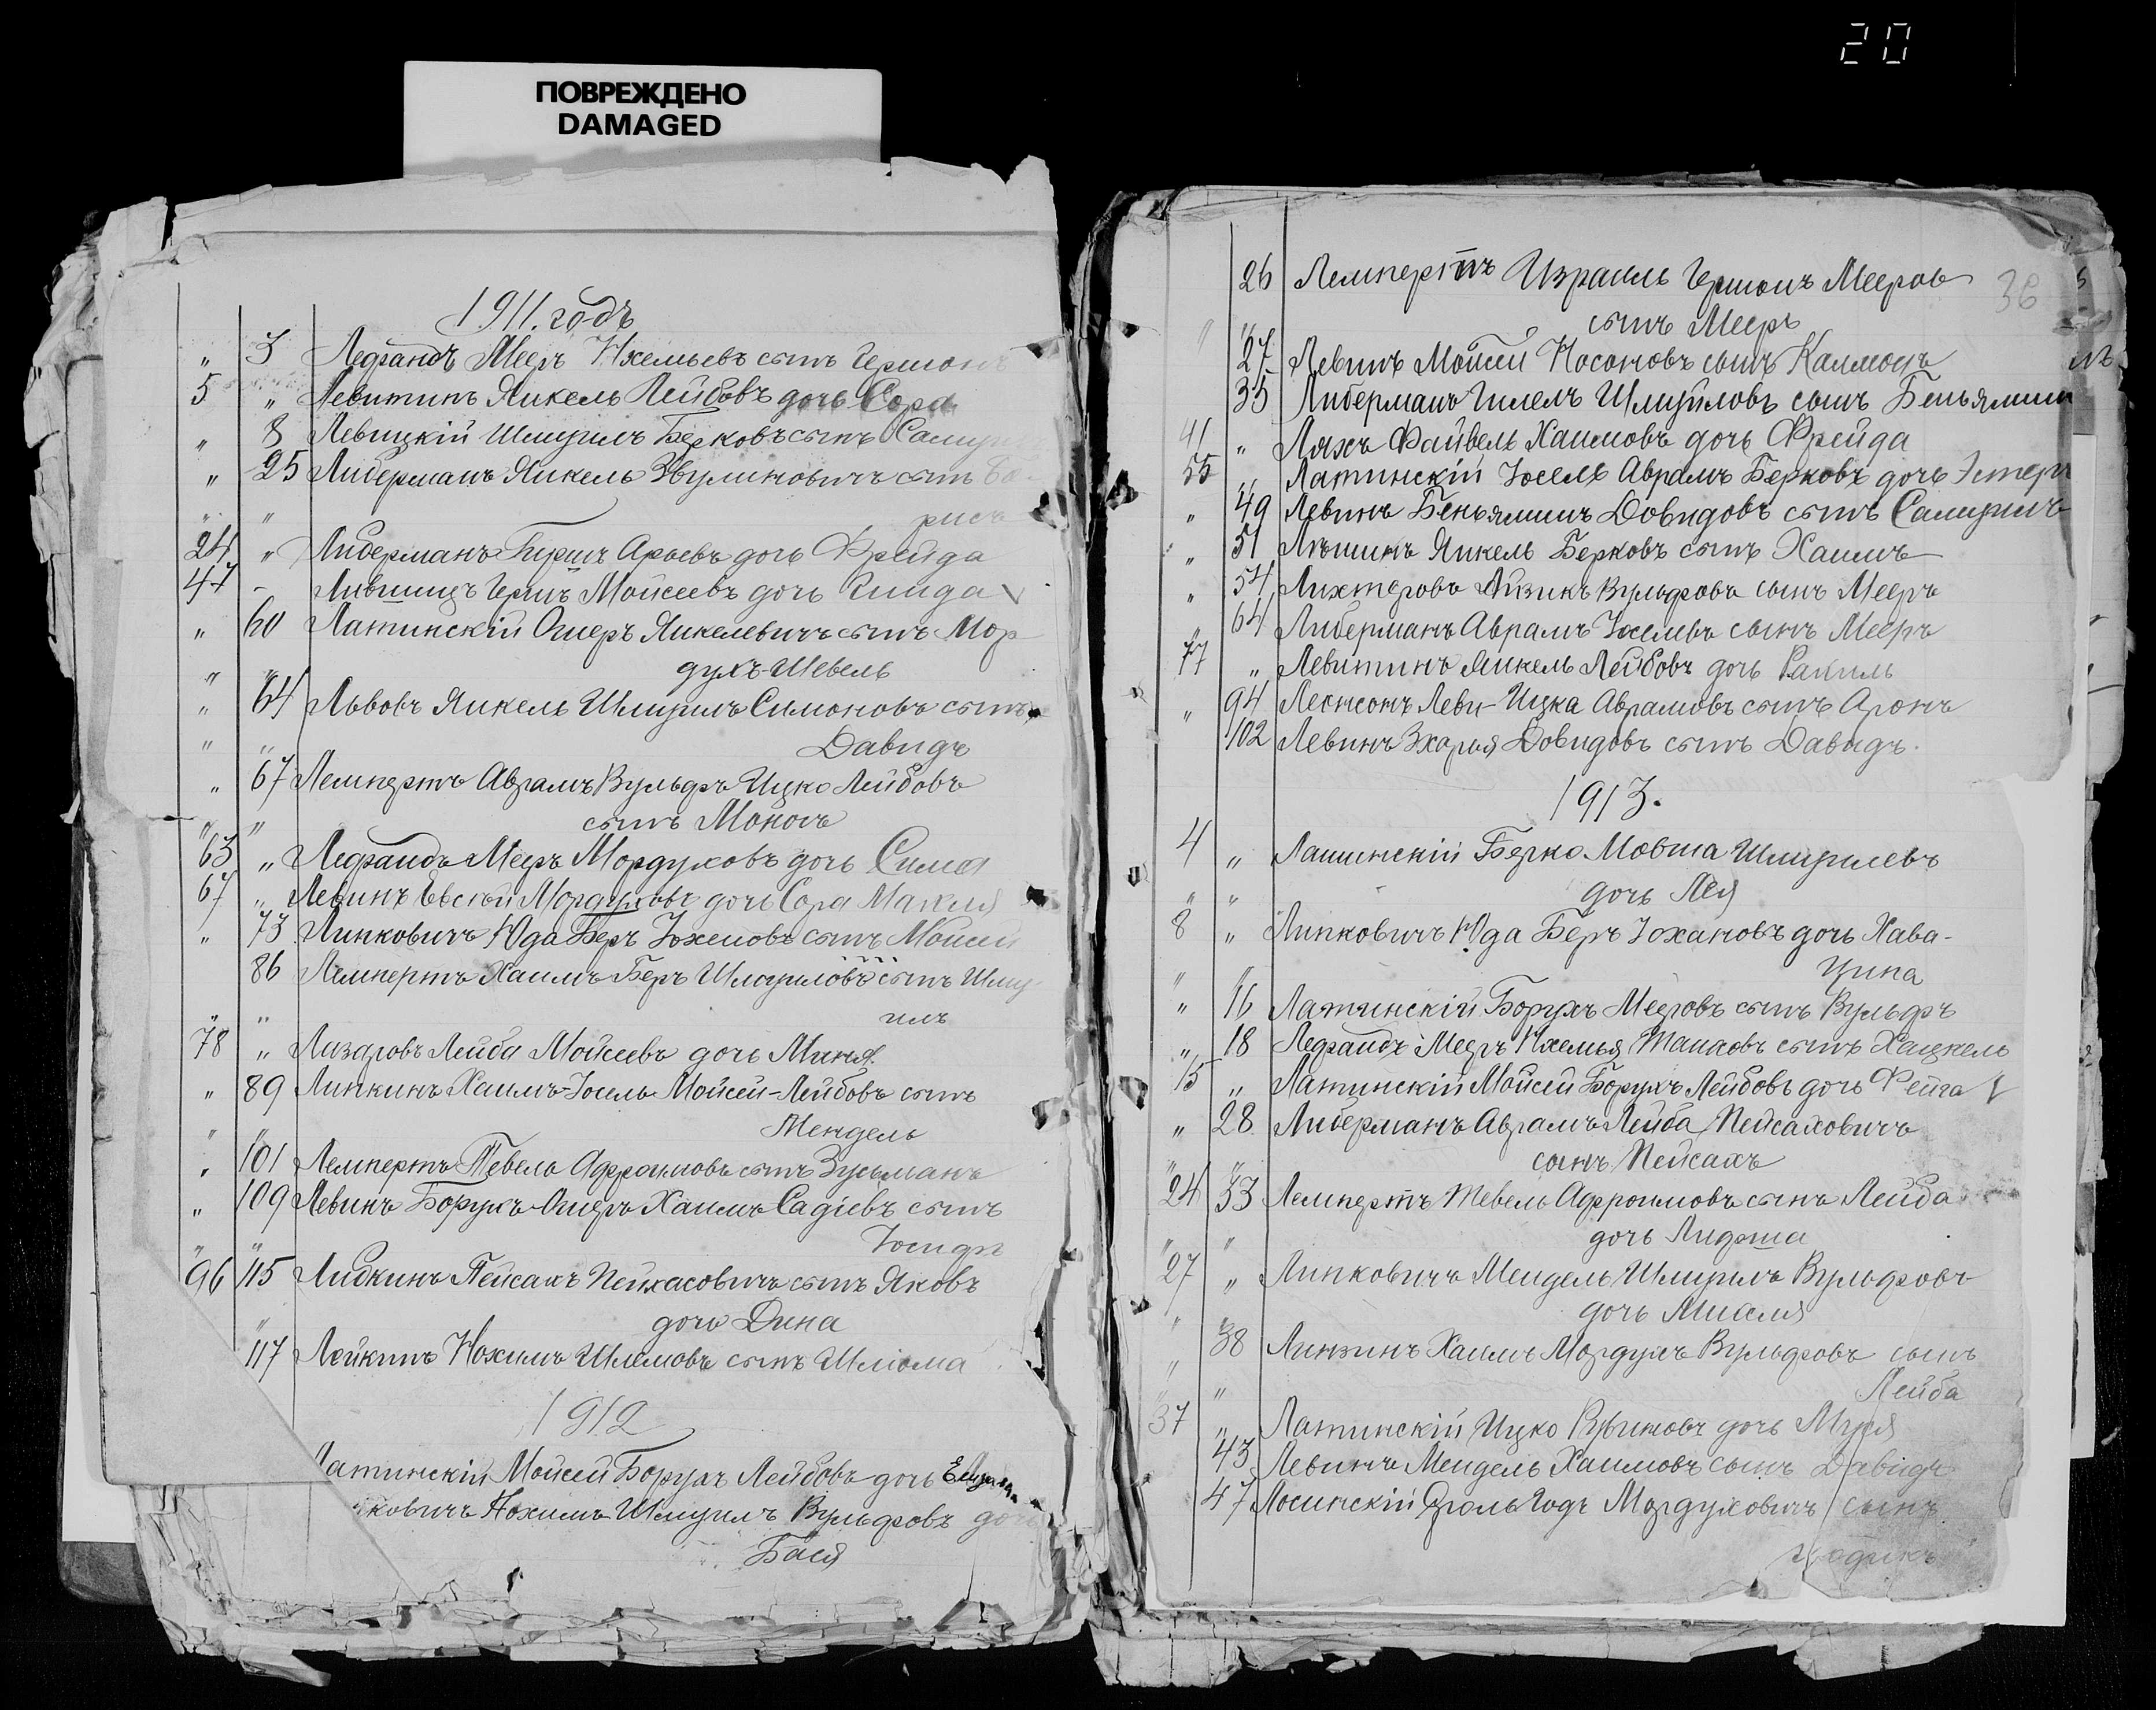 20
ПОВРЕЖДЕНО
DAMAGED
1911. годъ
„ 3 Лефандъ Меер Нхемьевъ сынъ Гершонъ
5 „ Левитинъ Янкель Лейбовъ дочь Сора
„ 8 Левицкій Шмуилъ Берковъ сынъ
„ 25 Либерманъ Янкель Звулиновичъ сынъ Бо-
„ „ рисъ
24 „ Либерманъ Гиршъ Арьевъ дочь Фрейда
47 - Лившицъ Гершъ Мойсеевъ дочь
„ 60 Латинскій Ошеръ Янкелевичъ сынъ Мор
„ „ духъ-Шевель
„ 64 Львовъ Янкель Шмуилъ Симоновъ сынъ
„ „ Давидъ
„ 67 Лемпертъ Аврамъ Вульфъ Ицко Лейбовъ
„ „ сынъ Монохъ
63 „ Лефандъ Меер Мордуховъ дочь Сима
67 „ Левинъ Евсей Мордуховъ дочь Сора
„ 73 Липковичъ Юда Беръ Іохеновъ сынъ Мойсей
86 Лемпертъ Хаимъ Беръ Шмуиловъ сынъ Шму
„ „ илъ
78 „ Лазаровъ Лейба Мойсеевъ дочь Миня
„ 89 Липкинъ Хаимъ-Іосель Мойсей-Лейбовъ сынъ
„ „ Мендель
„ 101 Лемпертъ Тевель Афроимовъ сынъ Зусьманъ
„ 109 Левинъ Борухъ-Ошеръ Хаимъ Садіевъ сынъ
„ „ Іосифъ
96 115 Либкинъ Пейсахъ Пейхасовичъ сынъ Яковъ
„ дочь Дина
117 Лейкинъ Нохимъ Шлемовъ сынъ Шліома
1912
Латинскій Мойсей Борухъ Лейбовъ дочь
ковичъ Нохимъ-Шмуилъ Вульфовъ дочь
Бася
26 Лемпертъ Израиль Гершонъ Мееровъ 36
„ „ сынъ Меер
27 Левинъ Мойсей Носоновъ сынъ Калмонъ
35 Либерманъ Гилелъ Шмуйловъ сынъ Беньямин
41 „ Ляхъ Файвель Хаимовъ дочь Фрейда
55 „ Латинскій Іосель Аврамъ Берковъ дочь Эстеръ
„ 49 Левинъ Беньяминъ Довидовъ сынъ Самуилъ
„ 51 Лѣшинъ Янкель Берковъ сынъ Хаимъ
„ 54 Лихтеровъ Айзикъ Вульфовъ сынъ Мееръ
„ 64 Либерманъ Аврамъ сынъ Мееръ
77 „ Левитинъ Янкель Лейбовъ дочь Рахиль
„ 94 Леви-Ицка Аврамовъ сынъ Аронъ
102 Левинъ Зхарья Довидовъ сынъ Давидъ.
1913.
4 „ Лашинскій Берко-Мовша Шмуилевъ
„ „ дочь Лея
8 „ Липковичъ Юда Беръ Іохановъ дочь Хава-
„ „ Ципа
„ 16 Латинскій Борухъ Мееровъ сынъ Вульфъ
„ 18 Лефандъ Меер Нхемья сынъ Хацкель
15 „ Латинскій Мойсей Борухъ Лейбовъ дочь Фейга
„ 28 Либерманъ Аврамъ Лейба Пейсаховичъ
„ „ сынъ Пейсахъ
24 33 Лемпертъ Тевель Афроимовъ сынъ Лейба
„ „ дочь Лифша
27 „ Липковичъ Мендель Шмуилъ Вульфовъ
„ „ дочь Михля
„ 38 Линзинъ Хаимъ Мордухъ Вульфовъ сынъ
„ „ Лейба
37 „ Латинскій Ицко Рувимовъ дочь Муся
43 Левинъ Мендель Хаимовъ сынъ Давидъ
47 Лосинскій Сроль Годъ Мордуховичъ сынъ